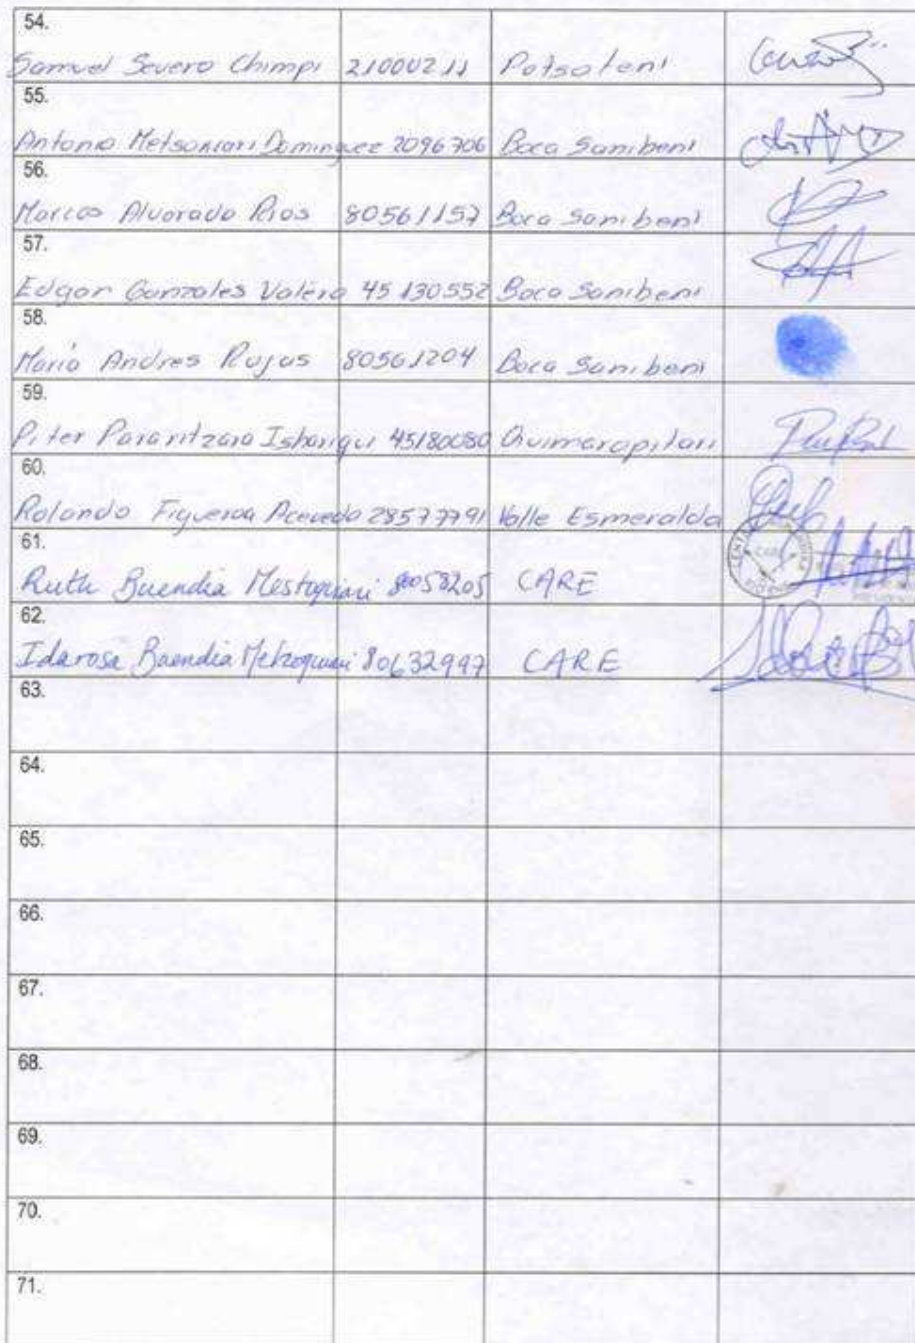 54.
Samuel Severo Chimpi 21000211 Potsoteni
55.
Antonio Metsoncari Dominguez 2096706 Boca Sanibeni
56.
Marcos Alvarado Rios 80561157 Boca Sanibeni
57.
Edgar Gonzales Valero 45130552 Boca Sanibeni
58.
Mario Andres Rojas 80561204 Boca Sanibeni
59.
Piter 45180080
60.
Rolando Figueroa Acevedo 28577791 Valle Esmeralda
61.
Ruth Buendia Mestoquiari 80058205 CARE
62.
Idarosa Buendia Metzoquiari 80632997 CARE
63.
64.
65.
66.
67.
68.
69.
70.
71.